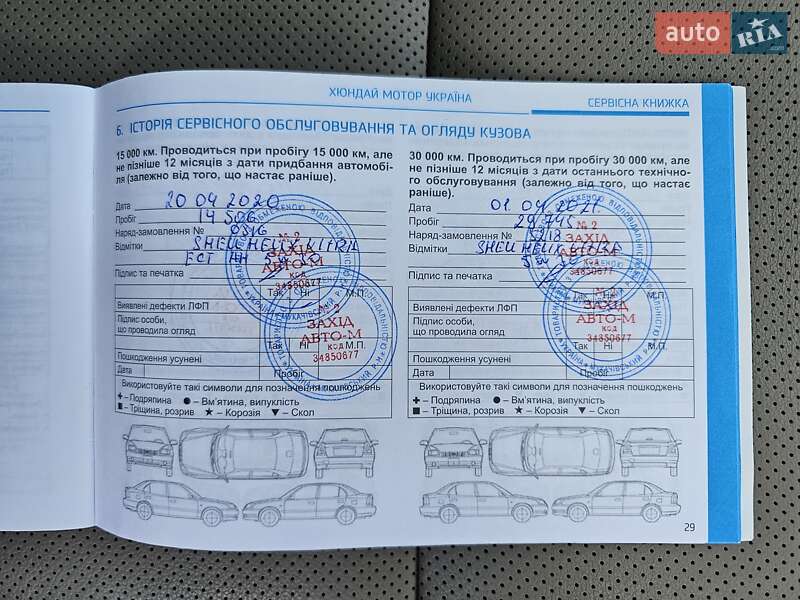 auto RIA
ХЮНДАЙ МОТОР УКРАЇНА
СЕРВІСНА КНИЖКА
6. ІСТОРІЯ СЕРВІСНОГО ОБСЛУГОВУВАННЯ ТА ОГЛЯДУ КУЗОВА
15 000 км. Проводиться при пробігу 15 000 км, але
не пізніше 12 місяців з дати придбання автомобі-
ля (залежно від того, що настає раніше).
Дата 20 04 2020
Пробіг 14 506
Наряд-замовлення №
Відмітки SHELL HELIX ULTRA
ECT
Підпис та печатка
Так Ні М.П.
Виявлені дефекти ЛФП
Підпис особи,
що проводила огляд
Так Ні М.П.
Пошкодження усунені
Дата Пробіг
Використовуйте такі символи для позначення пошкоджень
Подряпина Вм'ятина, випуклість
Тріщина, розрив Корозія Скол
№ 2
ЗАХІД
АВТО-М
КОД
34850677
ЗАХІД
АВТО-М
КОД
34850677
30 000 км. Проводиться при пробігу 30 000 км, але
не пізніше 12 місяців з дати останнього технічно-
го обслуговування (залежно від того, що настає
раніше).
Дата 01 04 2021
Пробіг 29 745
Наряд-замовлення №
Відмітки SHELL HELIX
Підпис та печатка
Так Ні М.П.
Виявлені дефекти ЛФП
Підпис особи,
що проводила огляд
Так Ні М.П.
Пошкодження усунені
Дата Пробіг
Використовуйте такі символи для позначення пошкоджень
Подряпина Вм'ятина, випуклість
Тріщина, розрив Корозія Скол
№ 2
ЗАХІД
АВТО-М
КОД
34850677
ЗАХІД
АВТО-М
КОД
34850677
29